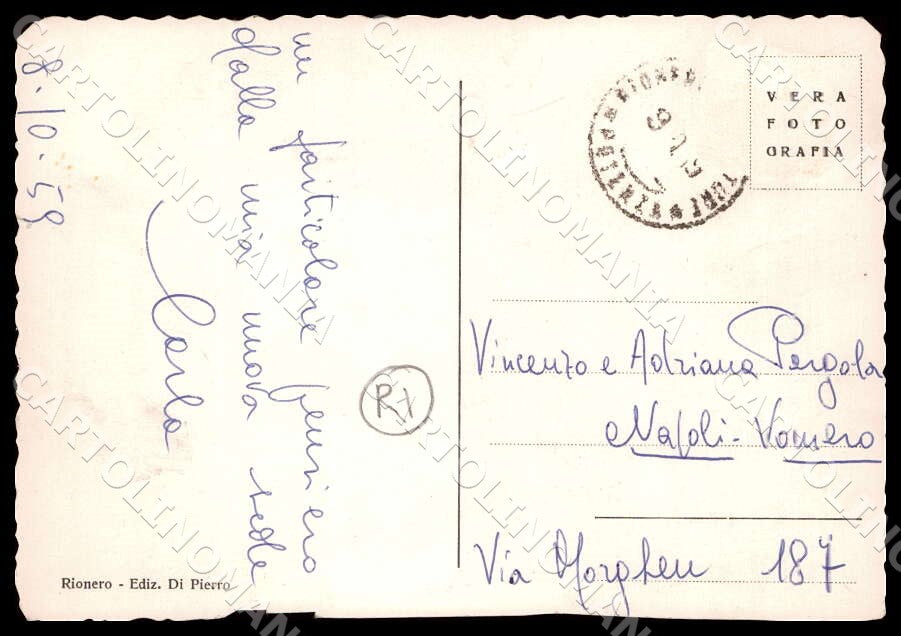 8.10.59
un particolare pensiero
dalla mia nuova sede
Carlo
R1
VERA
FOTO
GRAFIA
Vincenzo e Adriana Pergola
Napoli - Vomero
Via Morghen 187
Rionero - Ediz. Di Pierro
CARTOLINOMANIA